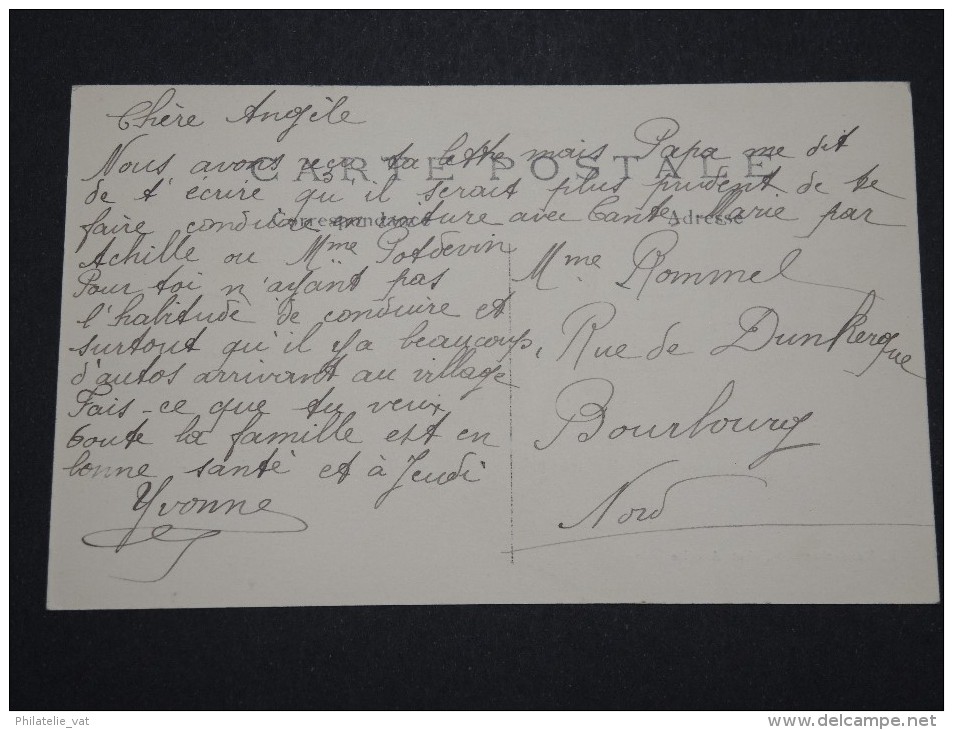 Chère Angèle
Nous avons reçu ta lettre mais Papa me dit
CARTE POSTALE
de t'écrire qu'il serait plus prudent de te
faire conduire en voiture avec tante Marie par
Correspondance
Adresse
Achille ou Mme Potdevin
Pour toi n'ayant pas
l'habitude de conduire et
surtout qu'il y a beaucoup
d'autos arrivant au village
Fais-ce que tu veux
toute la famille est en
bonne santé et à Jeudi
Yvonne
Mme Rommel
Rue de Dunkerque
Bourbourg
Nord
Philatelie_vat
www.delcampe.net